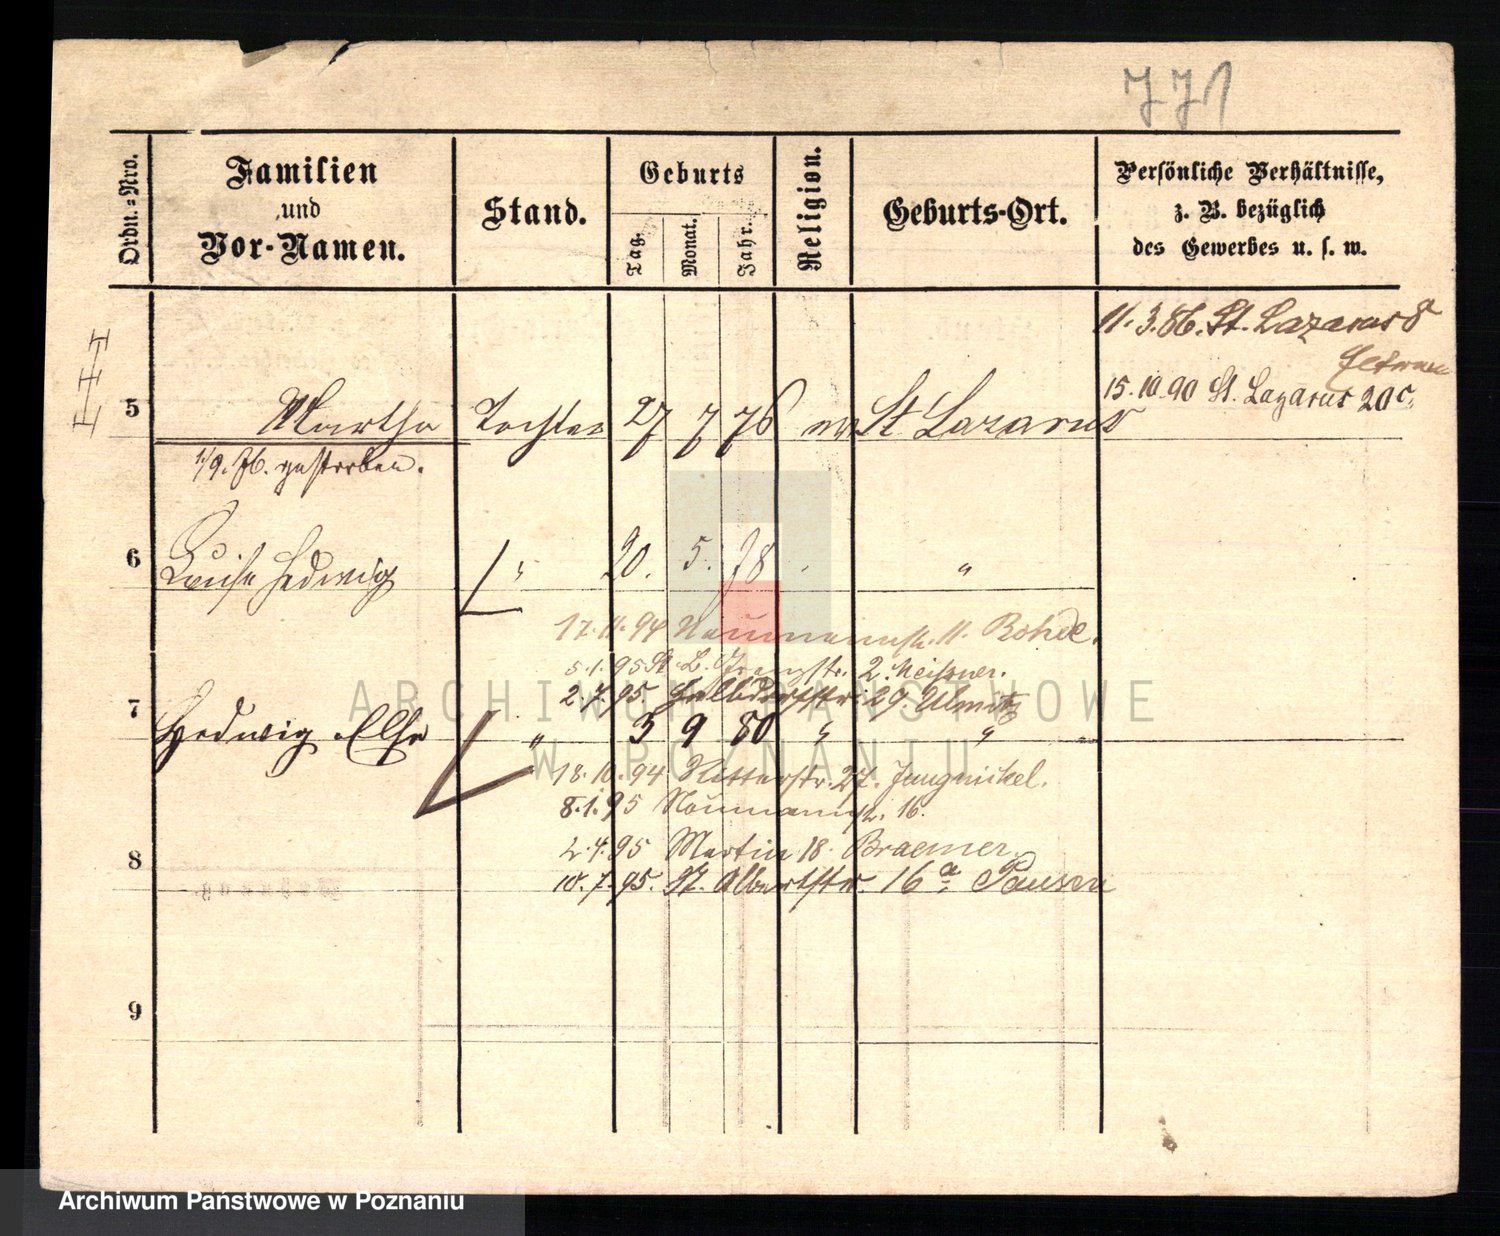 771
Ordn.=Nro.
Familien
und
Vor-Namen.
Stand.
Geburts
Tag.
Monat.
Jahr.
Religion.
Geburts-Ort.
Persönliche Verhältnisse,
z. B. bezüglich
des Gewerbes u. s. w.
11.3.86. St. Lazarus 8
15.10.90 St. Lazarus 20c.
5 Martha Tochter 27 7 76 ev St Lazarus
1/9. 76. gestorben.
6 Luise Hedwig " 20. 5. 78 "
17.11.94 Naumannstr. 11. Rohde.
5.1.95 St. L. 2. Meissner.
2.7.95 29. Ulmitz
7 Hedwig Else " 3 9 80 " "
18.10.94 Ritterstr. 27. Jungnickel.
8.1.95 Naumannstr. 16.
2.4.95 Martin 18. Braemer.
10.7.95. St. Albertstr 16a Pausen
8
9
ARCHIWUM PAŃSTWOWE
W POZNANIU
Archiwum Państwowe w Poznaniu